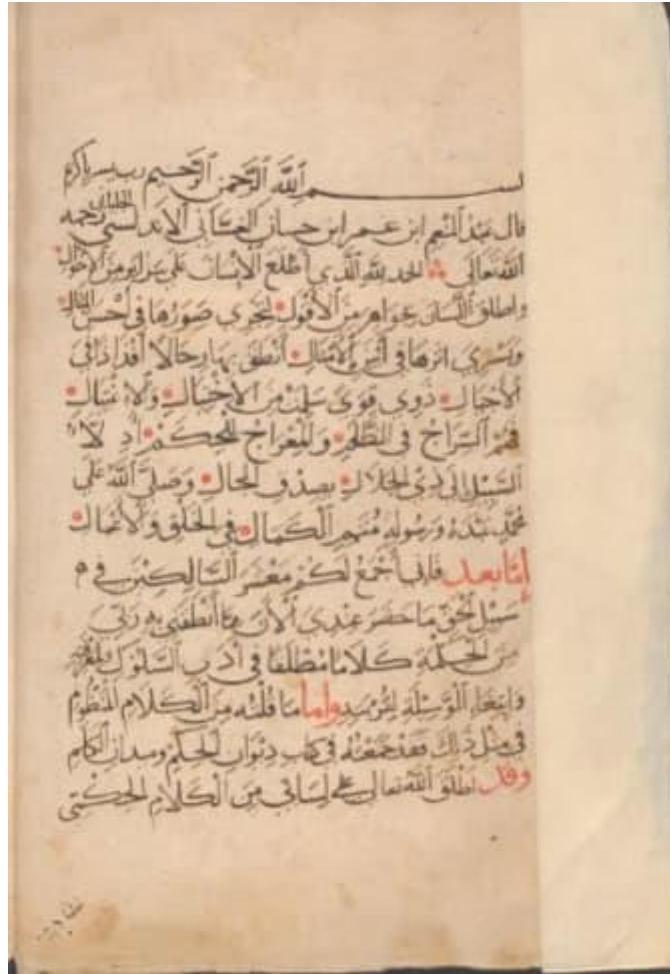 بسم الله الرحمن الرحيم رب يسر يا كريم
قال عبد المنعم ابن عمر ابن حسان الغساني الاندلسي رحمه
الله تعالى الحمد لله الذي أطلع الإنسان على سرائر من الأحوال
واطلق اللسان بجواهر من الأقوال لتجري صورها في أحسن
وتسري اثرها في الأمثال أنطق بها رجالا أفذاذ في
الأجيال ذوي قوى سلمت من الاختبال والا
فهم السراج في الظلم والمعراج للحكم أدلاء
السبيل إلى ذي الجلال بصدق الحال وصلى الله على
محمد عبده ورسوله متمم الكمال في الخلق والأفعال
اما بعد فاني أجمع لكم معشر السالكين في
سبيل الحق ما حضر عندي الآن مما أنطقني به ربي
من الحكمة كلاما مطلقا في أدب السلوك
وابتغاء الوسيلة واما ما قلته من الكلام المنظوم
في مثل ذلك فقد جمعته في كتاب ديوان الحكم وميدان الكلم
وقد اطلق الله تعالى على لساني من الكلام الحكمي